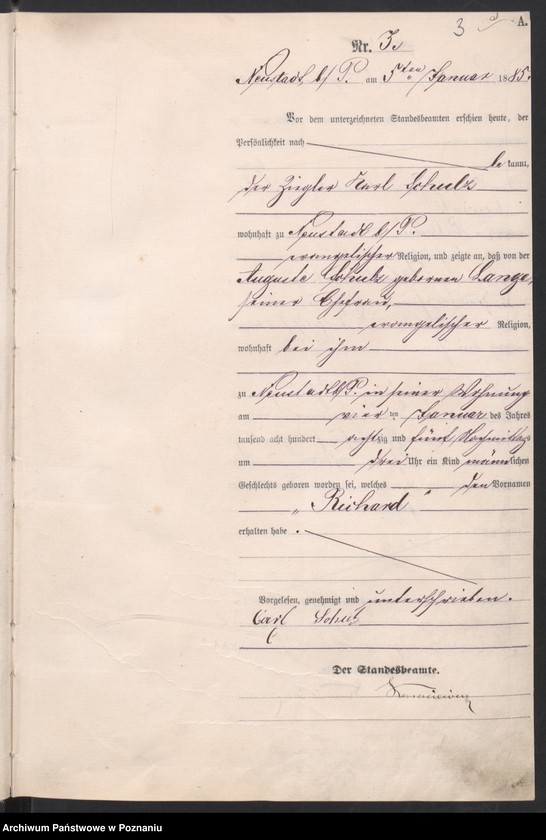 3 A.
Nr. 3.
Neustadt b/P. am 5ten Januar 1885.
Vor dem unterzeichneten Standesbeamten erschien heute, der
Persönlichkeit nach
bekannt,
der Ziegler Karl Schulz
wohnhaft zu Neustadt b/P.
evangelischer Religion, und zeigte an, daß von der
Auguste Schulz gebornen Lange,
seiner Ehefrau,
evangelischer Religion,
wohnhaft bei ihm
zu Neustadt b/P. in seiner Wohnung
am vier ten Januar des Jahres
tausend acht hundert achtzig und fünf Nachmittags
um drei Uhr ein Kind männlichen
Geschlechts geboren worden sei, welches den Vornamen
„Richard“
erhalten habe.
Vorgelesen, genehmigt und unterschrieben.
Carl Schulz
Der Standesbeamte.
Archiwum Państwowe w Poznaniu